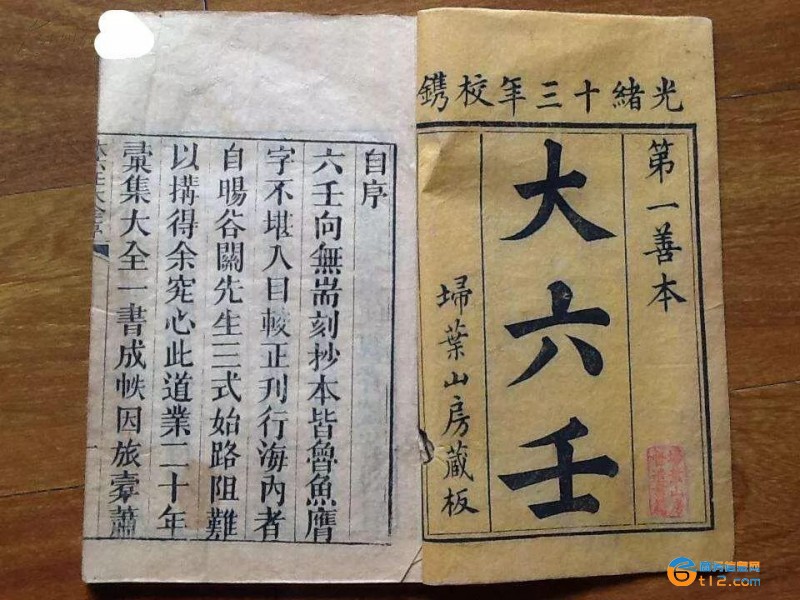 光緒十三年校鐫
第一善本
大六壬
埽葉山房藏板
自序
六壬向無耑刻抄本皆魯魚膺
字不堪入目較正刊行海內者
自暘谷關先生三式始路阻難
以搆得余究心此道業二十年
彚集大全一書成帙因旅橐蕭
t12.com